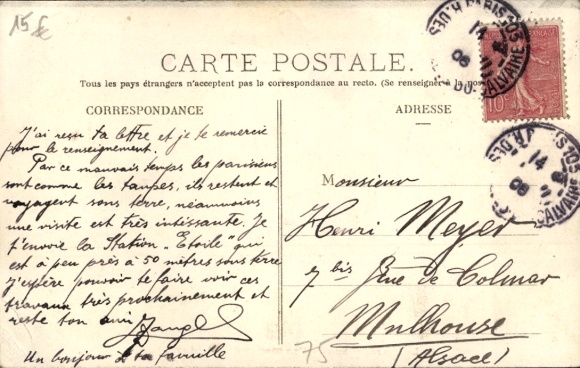 15 €
CARTE POSTALE.
Tous les pays étrangers n'acceptent pas la correspondance au recto. (Se renseigner à la
CORRESPONDANCE
ADRESSE
J'ai reçu ta lettre et je te remercie
pour le renseignement.
Par ce mauvais temps les parisiens
sont comme les taupes, ils restent et
voyagent sous terre, néaumoins
une visite est très intéssante. Je
t'envoie la Station "Etoile" qui
est à peu près à 50 mètres sous terre
J'espère pouvoir te faire voir ces
travaux très prochainement et
reste ton ami
Un bonjour à ta famille
Monsieur
Henri Meyer
7 bis Rue de Colmar
Mulhouse
(Alsace)
75
10c
14
06
CALVAIRE
14
06
CALVAIRE